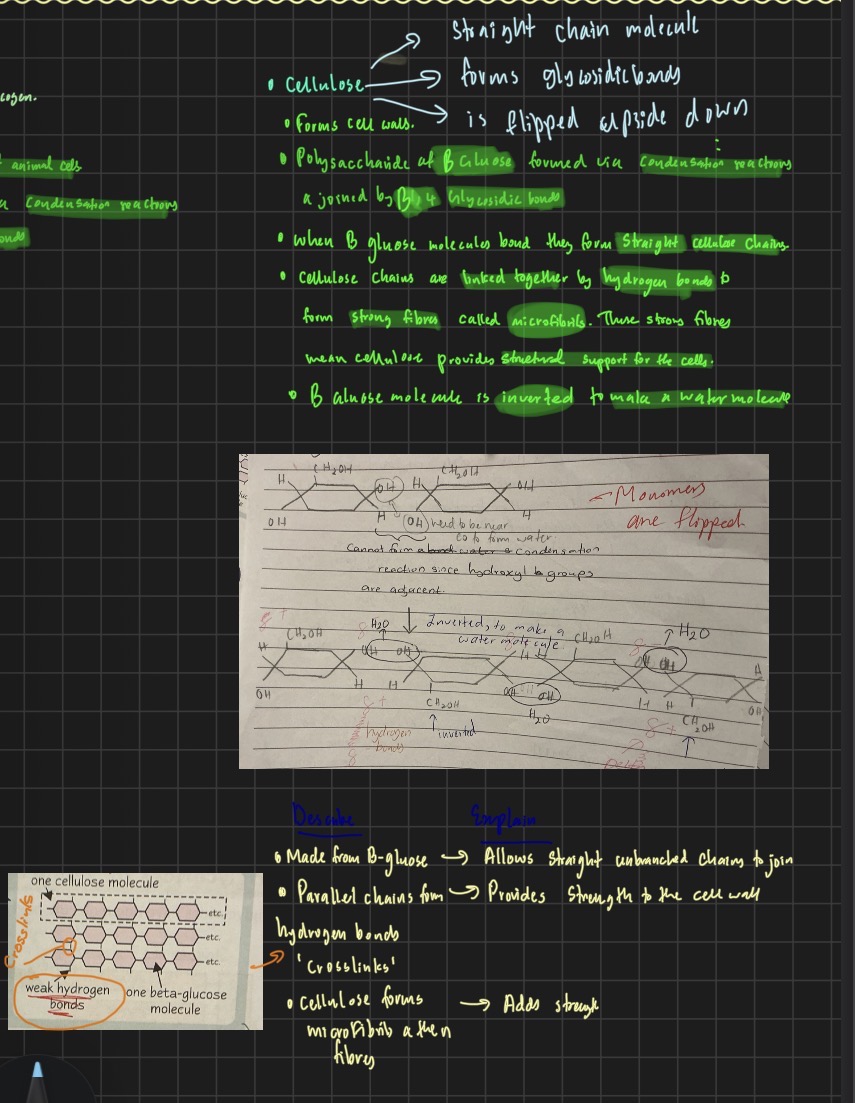 Straight chain molecule
• Cellulose
forms glycosidic bonds
cogen.
is flipped upside down
• Forms cell walls.
animal cells
• Polysaccharide of B Glucose formed via Condensation reactions
a Condensation reactions
a joined by B 1,4 Glycosidic bonds
onds
• when B glucose molecules bond they form Straight cellulose Chains
• Cellulose Chains are linked together by hydrogen bonds to
form strong fibres called microfibrils. These strong fibres
mean cellulose provides structural support for the cells.
• B Glucose molecule is inverted to make a water molecule
CH2OH CH2OH
H OH H OH
OH H OH H
need to be near
to form water.
← Monomers
are flipped
Cannot form a condensation
reaction since hydroxyl groups
are adjacent.
Inverted, to make a
water molecule
CH2OH H2O CH2OH H2O
H OH OH H H OH OH H
OH H H OH OH H H OH
CH2OH H2O CH2OH
hydrogen
bonds
inverted
Describe Explain
• Made from B-glucose → Allows Straight unbranched chains to join
• Parallel chains form → Provides Strength to the cell wall
hydrogen bonds
'Crosslinks'
• Cellulose forms → Adds strength
microfibrils a then
fibres
one cellulose molecule
Crosslinks
etc.
etc.
etc.
weak hydrogen
bonds
one beta-glucose
molecule